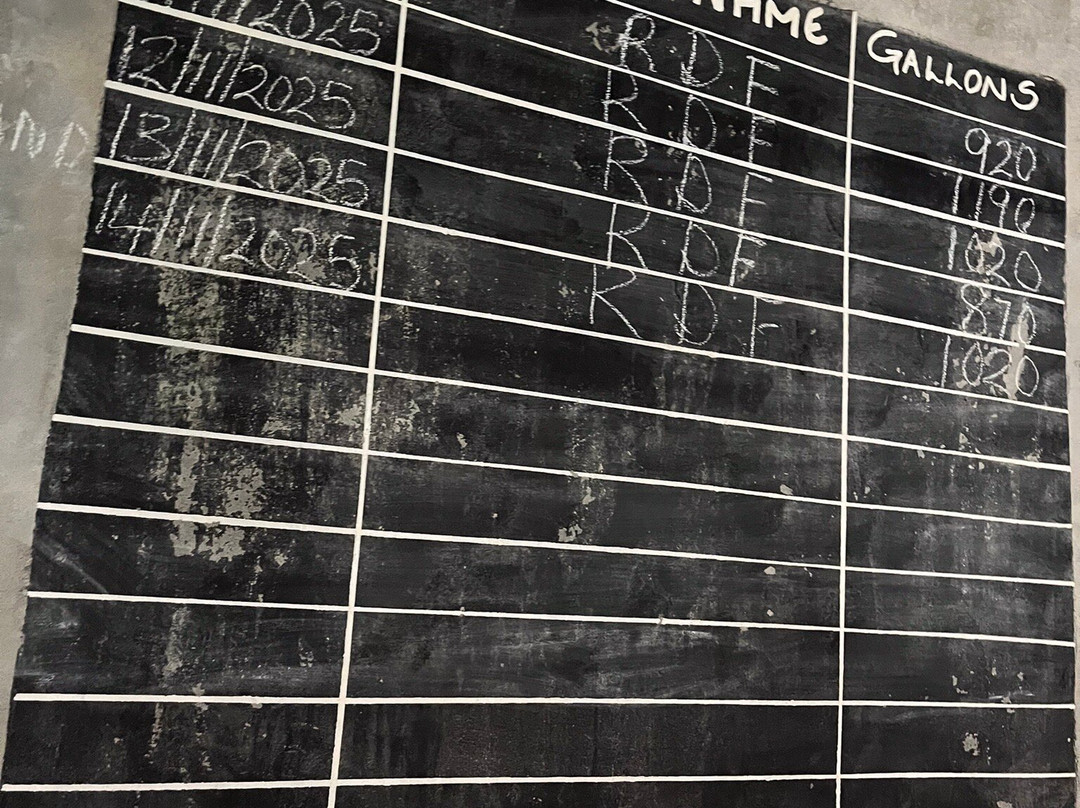 NAME GALLONS
R D F 920
/11/2025 R D F 1190
12/11/2025 R D F 1020
13/11/2025 R D F 870
14/11/2025 R D F 1020